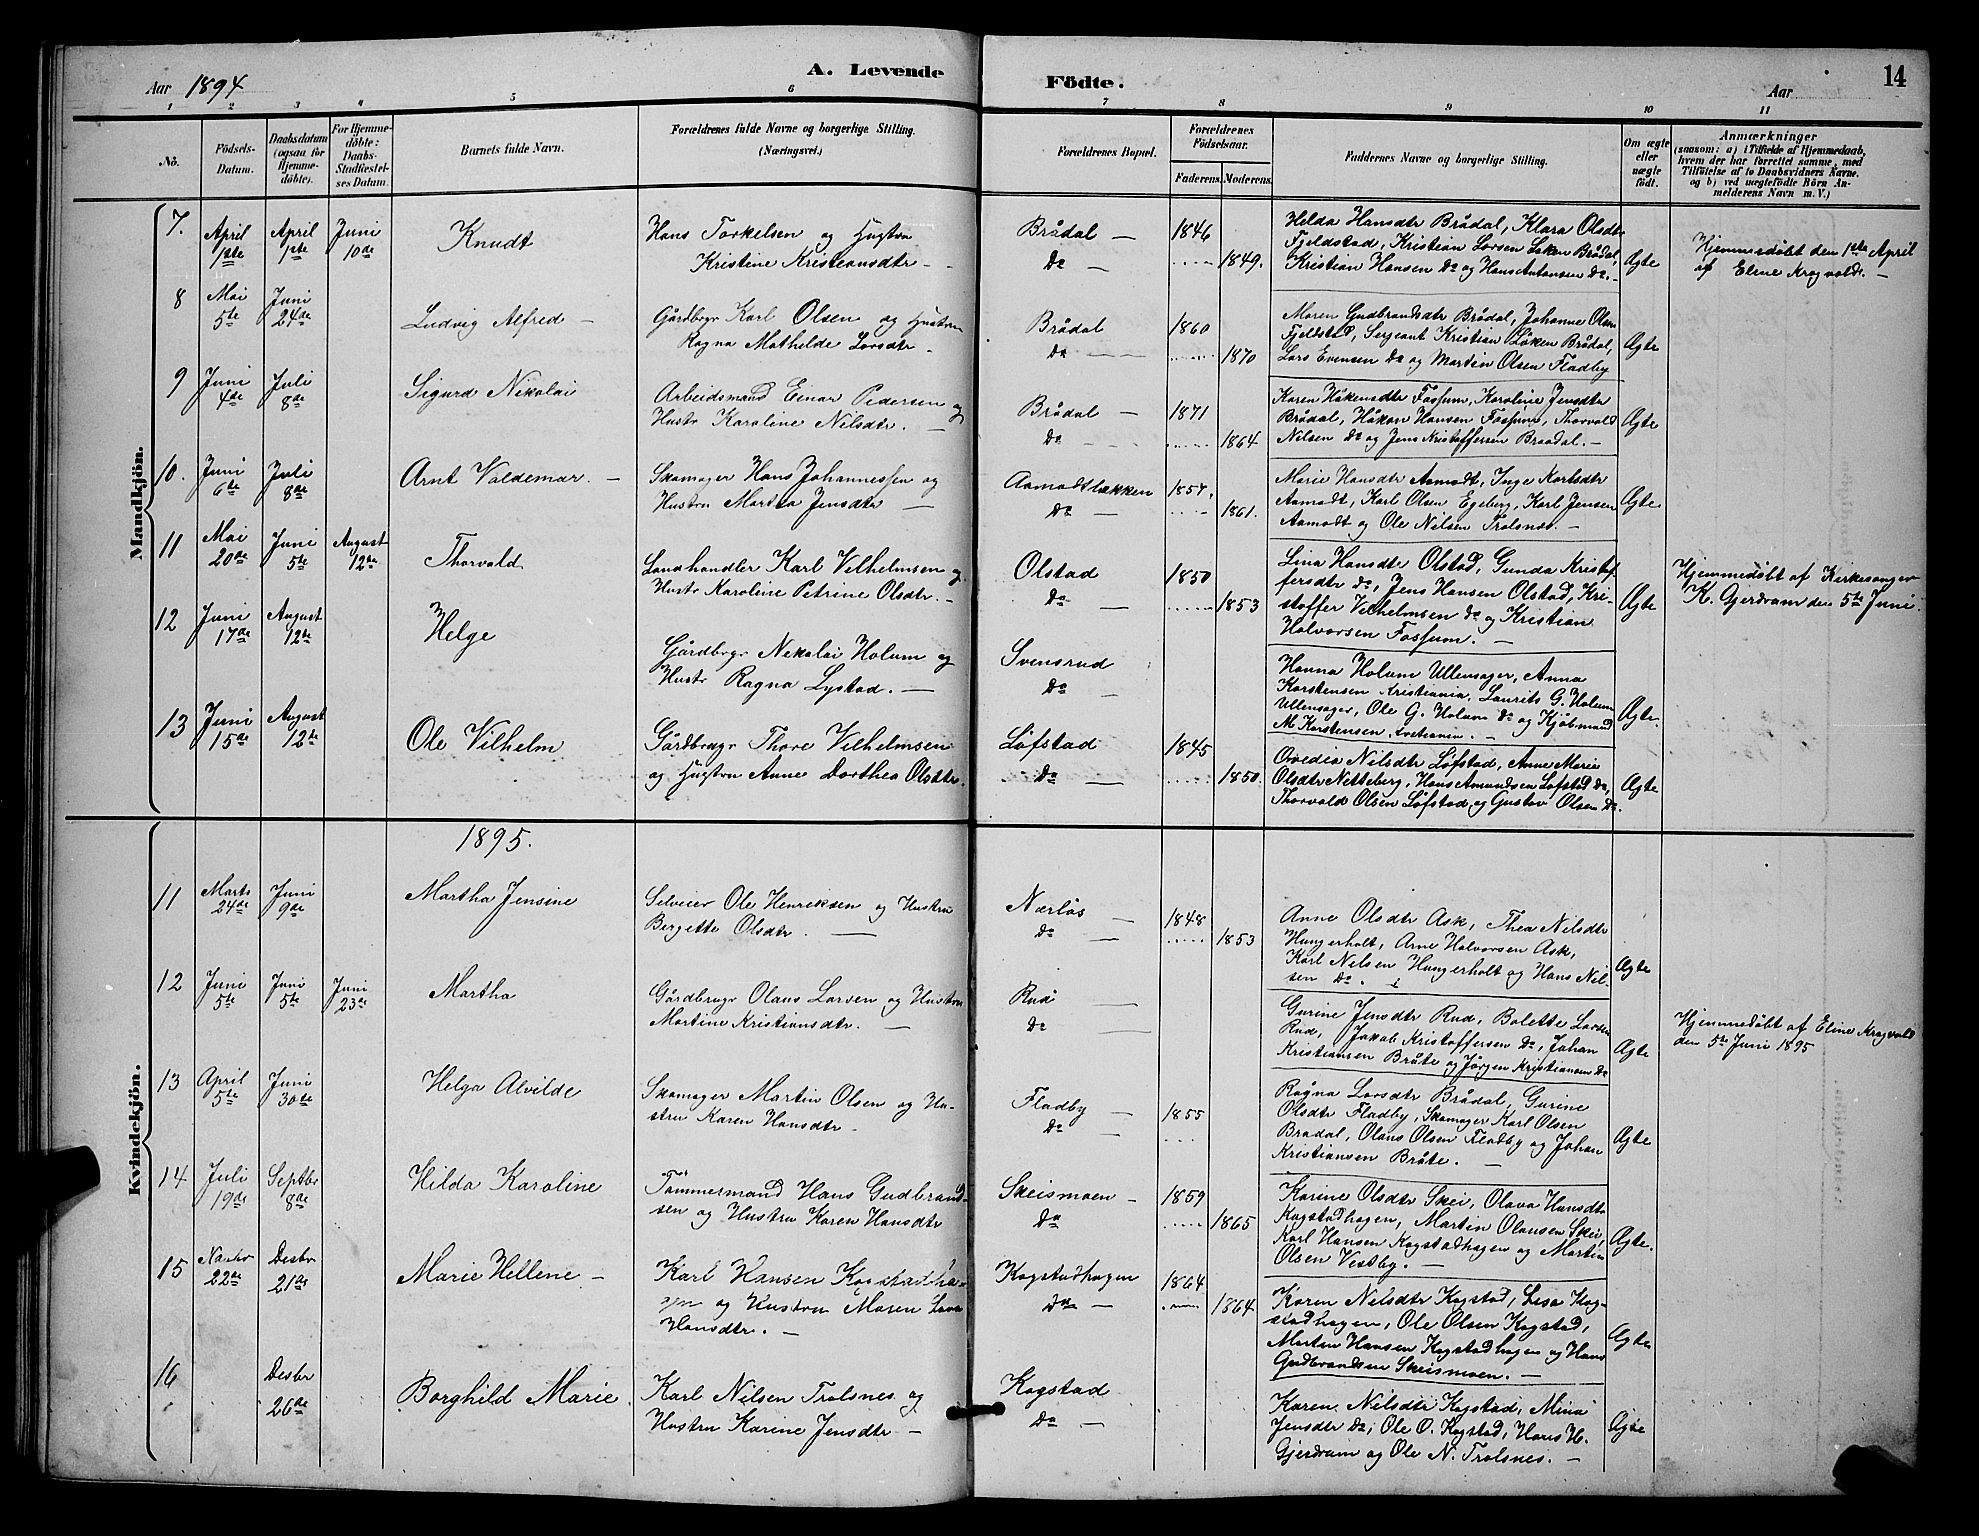 Aar 1894
A. Levende
Födte.
Aar
14
1 2 3 4 5 6 7 8 9 10 11
No.
Födsels-
Datum.
Daabsdatum
(ogsaa for
Hjemme-
döbte).
For Hjemme-
döbte:
Daabs-
Stadfæstel-
ses Datum.
Barnets fulde Navn.
Forældrenes fulde Navne og borgerlige Stilling.
(Næringsvei.)
Forældrenes Bopæl.
Forældrenes
Födselsaar.
Faderens. Moderens.
Faddernes Navne og borgerlige Stilling.
Om ægte
eller
uægte
födt.
Anmærkninger
(saasom: a) i Tilfælde af Hjemmedaab,
hvem der har forrettet samme, med
Tilföielse af to Daabsvidners Navne.
og b) ved uægtefödte Börn An-
melderens Navn m.V.)
Mandkjön.
7. April 1ste
April 1ste
Juni 10de
Knudt
Hans Torkelsen og Hustru
Kristine Kristiansdtr —
Brådal —
Do —
1846
1849.
Helda Hansdtr Brådal, Klara Olsdtr
Fjeldstad, Kristian Larsen Løken Brådal,
Kristian Hansen Do og Hans Antonsen Do. —
Ægte
Hjemmedøbt den 1ste April
af Eline Kragvold. —
8 Mai 5te
Juni 24de
Ludvig Alfred —
Gårdbrgr Karl Olsen og Hustru
Ragna Mathilde Larsdtr —
Brådal
Do —
1860
1870
Maren Gudbrandsdtr Brådal, Johanne Olsen
Fjeldstad, Sergeant Kristian Løken Brådal,
Lars Evensen Do og Martin Olsen Fladby
Ægte
9 Juni 4de
Juli 8de
Sigurd Nikolai
Arbeidsmand Einar Pedersen og
Hustr Karoline Nilsdtr. —
Brådal —
Do —
1871
1864
Karen Håkensdtr Fossum, Karoline Jensdtr
Brådal, Håkon Hansen Fossum, Thorvald
Nilsen Do og Jens Kristoffersen Braadal. —
Ægte
10. Juni 6te
Juli 8de
Arnt Valdemar. —
Skomager Hans Johannessen og
Hustru Martha Jensdtr —
Aamodtløkken
Do —
1857.
1861.
Marie Hansdtr Aamodt, Inge Karlsdtr
Aamodt, Karl Olsen Egeberg, Karl Jensen
Aamodt og Ole Nilsen Trolsnæs. —
Ægte
11 Mai 20de
Juni 5te
August 12te
Thorvald
Landhandler Karl Vilhelmsen og
Hustr Karoline Petrine Olsdtr. —
Olstad
Do —
1850
1853
Lina Hansdtr Olstad, Gunda Kristof-
fersdtr Do, Jens Hansen Olstad, Kri-
stoffer Vilhelmsen Do og Kristian
Halvorsen Fossum. —
Ægte
Hjemmedøbt af Kirkesanger
K. Gjerdrum den 5te Juni.
12 Juni 17de
August 12te
Helge
Gårdbrgr Nikolai Holum og
Hustr Ragna Lystad. —
Svensrud
Do —
Hanna Holum Ullensager, Anna
Karstensen Kristiania, Laurits G. Holum
Ullensager, Ole G. Holum Do og Kjøbmand
M. Karstensen, —
Ægte.
13 Juni 15de
August 12te
Ole Vilhelm
Gårdbrugr Thore Vilhelmsen
og Hustru Anne Dorthea Olsdtr.
Løfstad
Do —
1845
1850.
Ovedia Nilsdtr Løfstad, Anne Marie
Olsdtr Netteberg, Hans Amundsen Løfstad Do,
Thorvald Olsen Løfstad og Gustav Olsen Do.
Ægte
1895.
Kvindekjön.
11 Marts 24de
Juni 9de
Martha Jensine
Selveier Ole Henriksen og Hustru
Bergitte Olsdtr. —
Nærløs —
Do —
1848
1853
Anne Olsdtr Ask, Thea Nilsdtr
Hungerholt, Arne Halvorsen Ask,
Karl Nilsen Hungerholt og Hans Nil-
sen Do.
Ægte
12 Juni 5te
Juni 5te
Juni 23de
Martha
Gårdbrugr Olaus Larsen og Hustru
Martine Kristiansdtr. —
Rud —
Do —
Gurine Jensdtr Rud, Bolette Larsen
Rud, Jakob Kristoffersen Do, Johan
Kristiansen Bråte og Jørgen Kristiansen Do
Ægte
Hjemmedøbt af Eline Kragvold
den 5te Juni 1895
13 April 5te
Juni 30te
Helga Alvilde
Skomager Martin Olsen og Hu-
stru Karen Hansdtr. —
Fladby —
Do —
1855
Ragna Larsdtr Brådal, Gurine
Olsdtr Fladby, Skomager Karl Olsen
Brådal, Olaus Olsen Fladby og Johan
Kristiansen Bråte. —
Ægte
14 Juli 19de
Septbr 8de
Hilda Karoline
Tømmermand Hans Gudbrand-
sen og Hustru Karen Hansdtr
Skeismoen —
Do
1859
1865
Karine Olsdtr Skei, Olava Hansdtr
Kogstadhagen, Martin Olausen Skei,
Karl Hansen Kogstadhagen og Martin
Olsen Vestby. —
Ægte.
15 22de
Desbr 21de
Marie Hellene —
Karl Hansen Kogstadha-
gen og Hustru Maren Lava
Hansdtr. —
Kogstadhagen
Do —
1864
1864
Karen Nilsdtr Kogstad, Lesa Kog-
stadhagen, Ole Olsen Kogstad,
Martin Hansen Kogstadhagen og Hans
Gudbrandsen Skeismoen. —
Ægte
16
Desbr 26de
Borghild Marie.
Karl Nilsen Trolsnes og
Hustru Karine Jensdtr —
Kogstad
Do —
Karen Nilsdtr Kogstad, Mina
Jensdtr Do, Ole O. Kogstad, Hans H.
Gjerdrum og Ole N. Trolsnes. —
Ægte